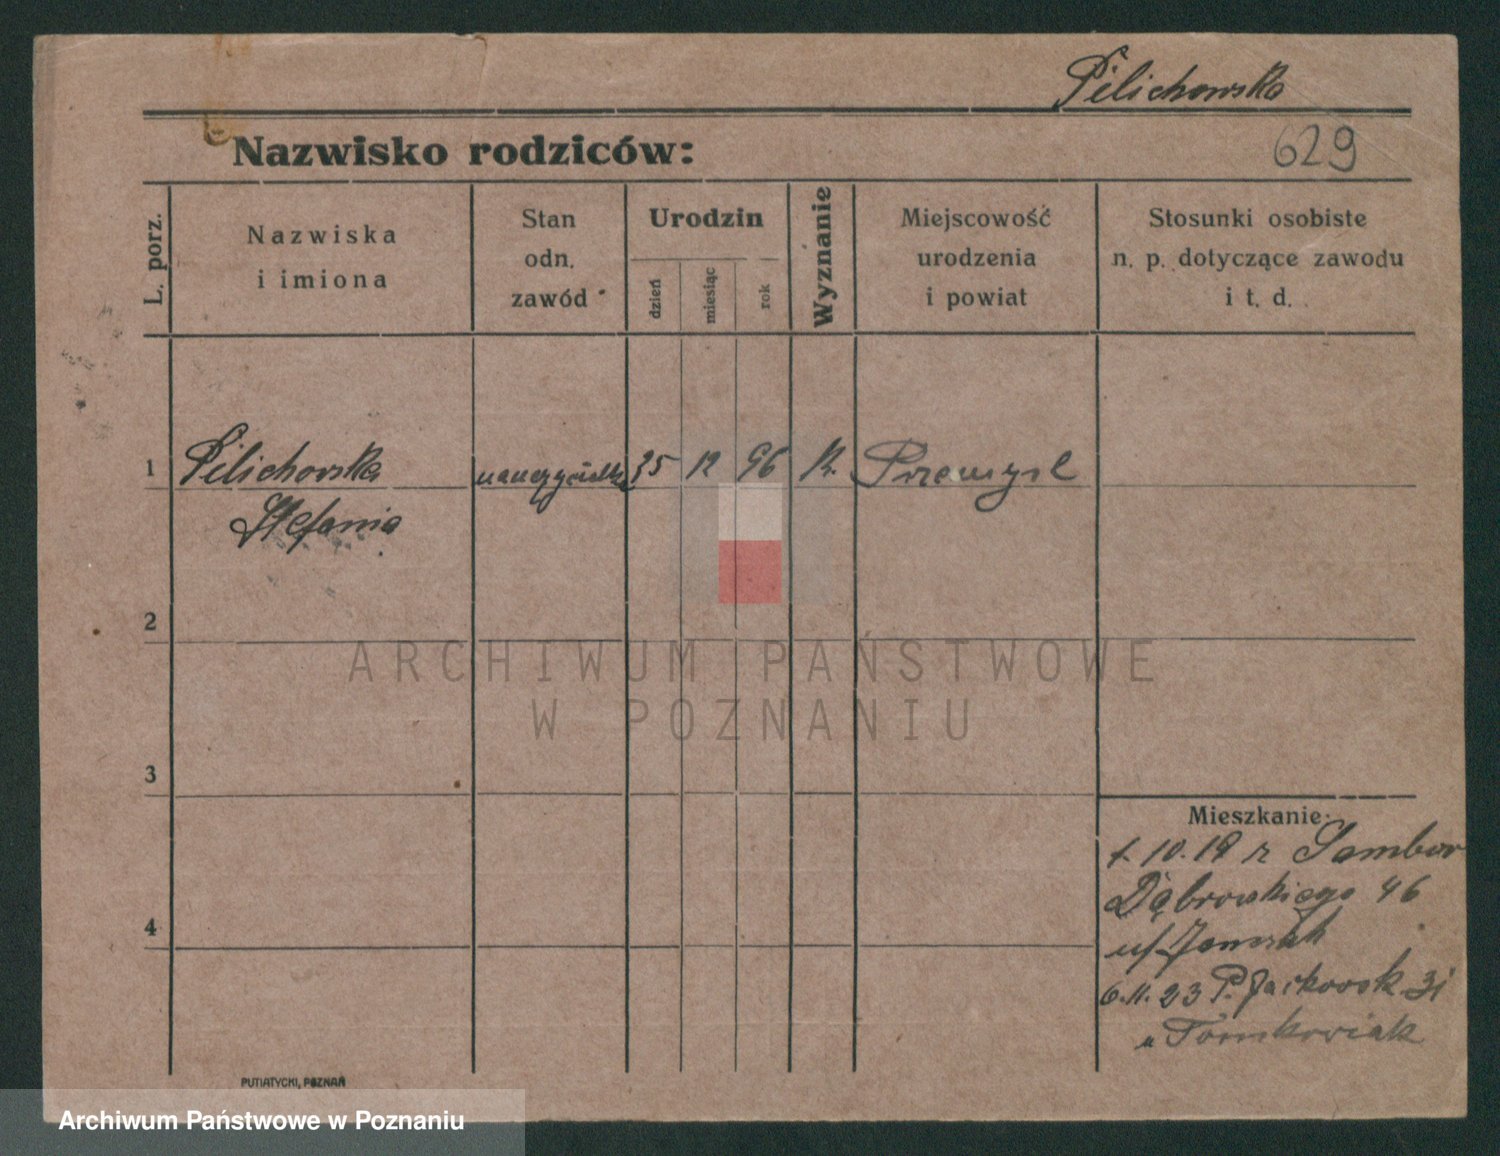 Pilichowska
Nazwisko rodziców:
629
L. porz.
Nazwiska
i imiona
Stan
odn.
zawód
Urodzin
dzień
miesiąc
rok
Wyznanie
Miejscowość
urodzenia
i powiat
Stosunki osobiste
n. p. dotyczące zawodu
i t. d.
1 Pilichovska nauczycielka 25 12 96 K. Przemysl
Stefania
2
ARCHIWUM PAŃSTWOWE
W POZNANIU
3
Mieszkanie:
1.10.19 z Sambor
Dąbrowskiego 46
4
6.11.23 P. Jackowsk 31
u Tomkowiak
PUTIATYCKI, POZNAŃ
Archiwum Państwowe w Poznaniu